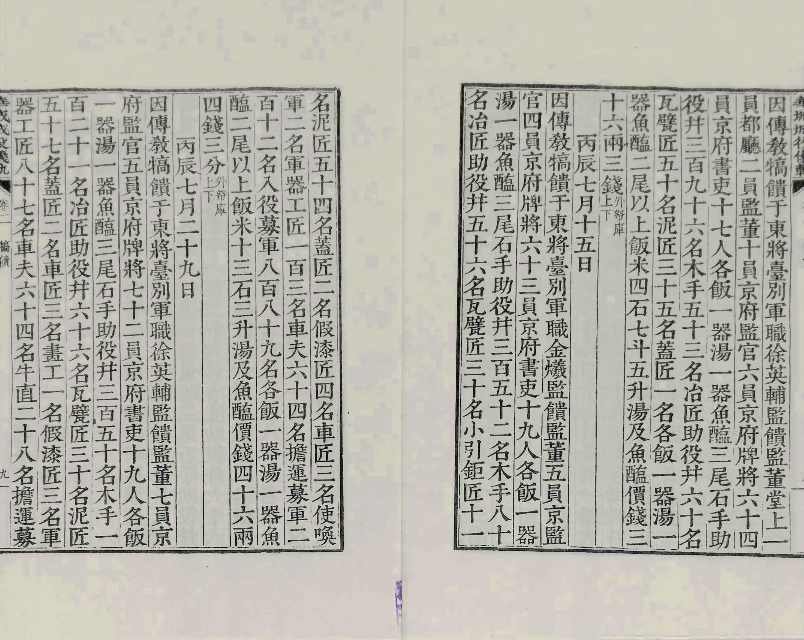 因傳敎犒饋于東將臺別軍職徐英輔監饋監董堂上一
員都廳二員監董十員京府監官六員京府牌將六十四
員京府書吏十七人各飯一器湯一器魚醢三尾石手助
役幷三百九十六名木手五十三名冶匠助役幷六十名
瓦甓匠五十名泥匠三十五名蓋匠一名各飯一器湯一
器魚醢二尾以上飯米四石七斗五升湯及魚醢價錢三
十六兩三錢外帑庫上下
丙辰七月十五日
因傳敎犒饋于東將臺別軍職金爔監饋監董五員京監
官四員京府牌將六十三員京府書吏十九人各飯一器
湯一器魚醢三尾石手助役幷三百五十二名木手八十
名冶匠助役幷五十六名瓦甓匠三十名小引鉅匠十一
名泥匠五十四名蓋匠二名假漆匠四名車匠三名使喚
軍二名軍器工匠一百三名車夫六十四名擔運募軍二
百十二名入役募軍八百八十九名各飯一器湯一器魚
醢二尾以上飯米十三石三升湯及魚醢價錢四十六兩
四錢三分外帑庫上下
丙辰七月二十九日
因傳敎犒饋于東將臺別軍職徐英輔監饋監董七員京
府監官五員京府牌將七十二員京府書吏十九人各飯
一器湯一器魚醢三尾石手助役幷三百五十名木手一
百二十一名冶匠助役幷六十六名瓦甓匠三十名泥匠
五十七名蓋匠二名車匠三名畫工一名假漆匠三名軍
器工匠八十七名車夫六十四名牛直二十八名擔運募